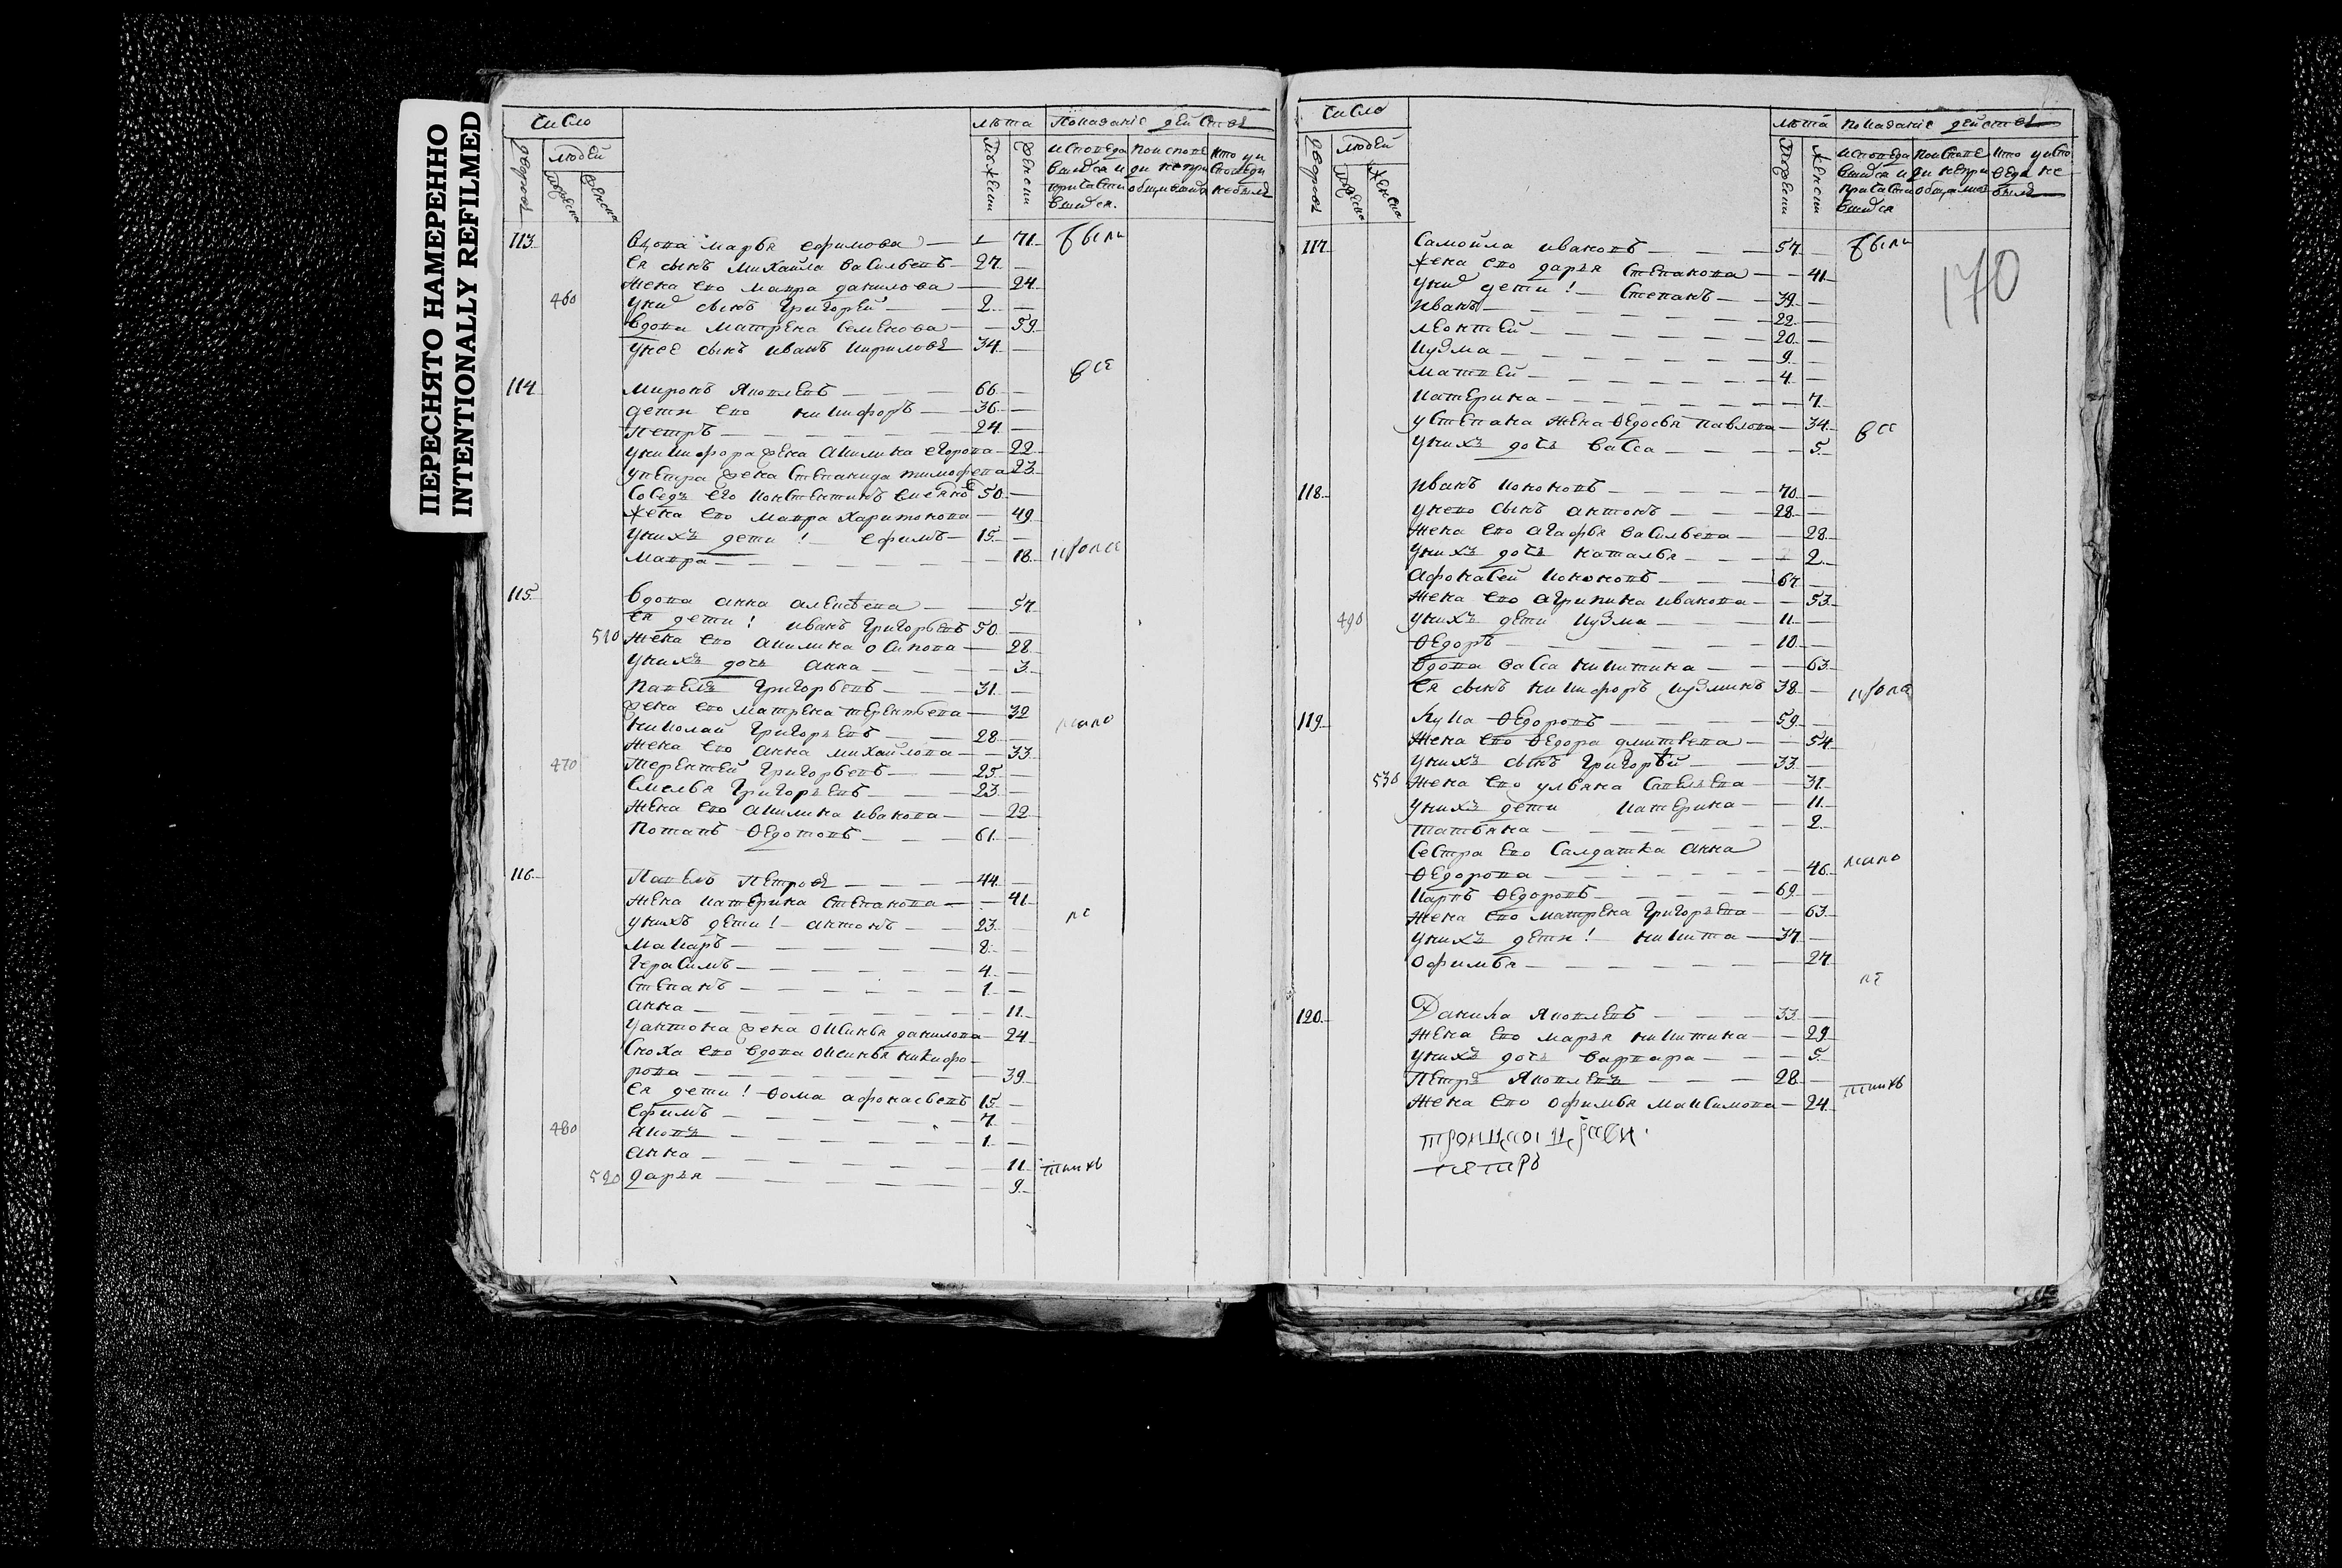 ПЕРЕСНЯТО НАМЕРЕННО
INTENTIONALLY REFILMED
Число
лѣта Показаніе действ
дворовъ
людей
мужески
женски
исповеда по испове кто у и
вшихся и ди не при споведи
причасти общившихся не былъ
вшихся.
113. Вдова марья ефимова — 71. были
Ея сынъ михайла васильевъ — 27. —
жена ево мавра данилова — 24.
460 у нихъ сынъ григорей — 2. —
вдова матрена семенова — 59.
у нее сынъ иванъ кириловъ 34. —
все
114. миронъ яковлевъ — 66. —
дети ево никифоръ — 36. —
петръ — 24. —
у никифора жена акилина егорова — 22.
у петра жена степанида тимофева 23.
Соседъ его констентинъ 50. —
жена ево мавра харитонова — 49.
у нихъ дети! ефимъ — 15. —
мавра — 18.
115. вдова анна алексѣева — 57.
ея дети! иванъ григорьевъ 50. —
510 жена ево акилина осипова — 28.
у нихъ дочь анна — 3.
павелъ григорьевъ — 31. —
жена ево матрена терентьева — 32
николай григорьевъ — 28. —
жена ево анна михайлова — 33.
470 терентей григорьевъ — 25. —
емельян григорьевъ — 23. —
жена ево акилина иванова — 22
потапъ ѳедотовъ — 61. —
116. Павелъ петровъ — 44. —
жена катерина степанова — 41.
у нихъ дети! антонъ — 23. —
макаръ — 8. —
герасимъ — 4. —
степанъ — 1. —
анна — 11.
у антона жена оксинья данилова — 24
сноха ево вдова оксинья никифо-
рова — 39.
ея дети! ѳома афонасьевъ 15. —
ефимъ — 7. —
480 яковъ — 1. —
анна — 11.
520 дарья — 9.
Число
лѣта показаніе действ
дворовъ
людей
мужески
женски
исповеда по испове кто у испо
вшихся и ди не при веди не
причасти общившихся былъ
вшихся
170
117. самойла ивановъ — 57. — были
жена ево дарья степанова — 41.
у нихъ дети! степанъ — 39. —
иванъ — 22. —
леонтей — 20. —
кузма — 9. —
матвей — 4. —
катерина — 7.
у степана жена ѳедосья павлова — 34.
у нихъ дочь васса — 5.
все
118. иванъ кононовъ — 70. —
у нево сынъ антонъ — 28. —
жена ево агафья васильева — 28.
у нихъ дочь наталья — 2.
афонасей кононовъ — 67. —
жена ево агрипина иванова — 53.
490 у нихъ дети кузма — 11. —
ѳедоръ — 10. —
вдова васса никитина — 63.
ея сынъ никифоръ кузминъ 38. —
119. лука ѳедоровъ — 59. —
жена ево ѳедора дмитвева — 54.
у нихъ сынъ григорѣй — 33. —
530 жена ево ульяна савельева — 31.
у нихъ дети катерина — 11.
татьяна — 2.
сестра ево салдатка анна
ѳедорова — 46.
карпъ ѳедоровъ — 69. —
жена ево матрена григорьева — 63.
у нихъ дети! никита — 37. —
офимья — 27
120. Данила яковлевъ — 33. —
жена ево марья никитина — 29.
у нихъ дочь варвара — 5.
петръ яковлевъ — 28. —
жена ево офимья максимова — 24.
петръ